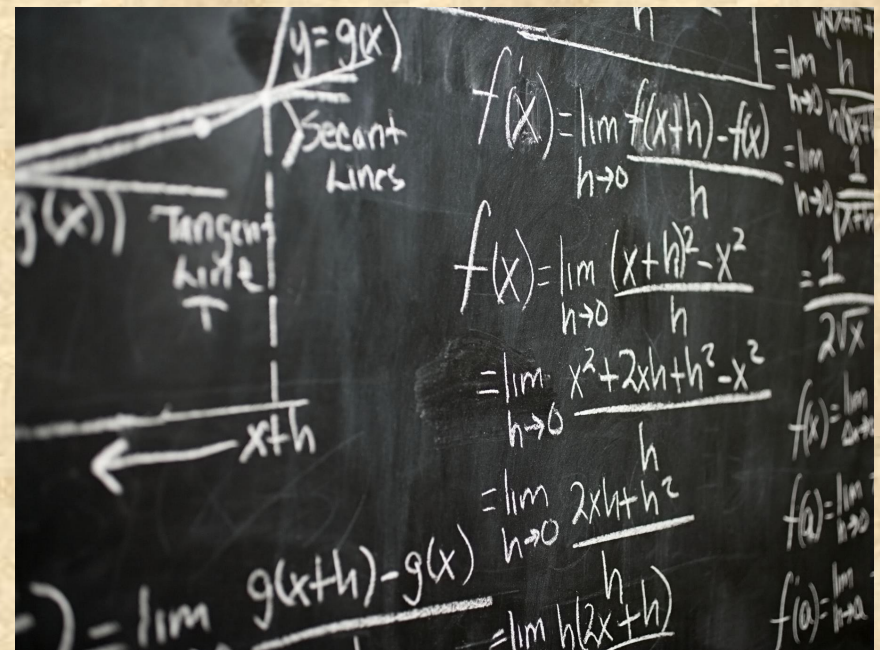 y=g(x)
Secant
Lines
g(x))
Tangent
Line
T
x+h
= lim g(x+h)-g(x)
h
f'(x)=lim f(x+h)-f(x)
h→0 h
f(x)=lim (x+h)²-x²
h→0 h
=lim x²+2xh+h²-x²
h→0 h
=lim 2xh+h²
h→0 h
=lim h(2x+h)
=lim h
h→0
=lim 1
h→0
=1
2√x
f(x)=lim
f(a)=lim
h→0
f'(a)=lim